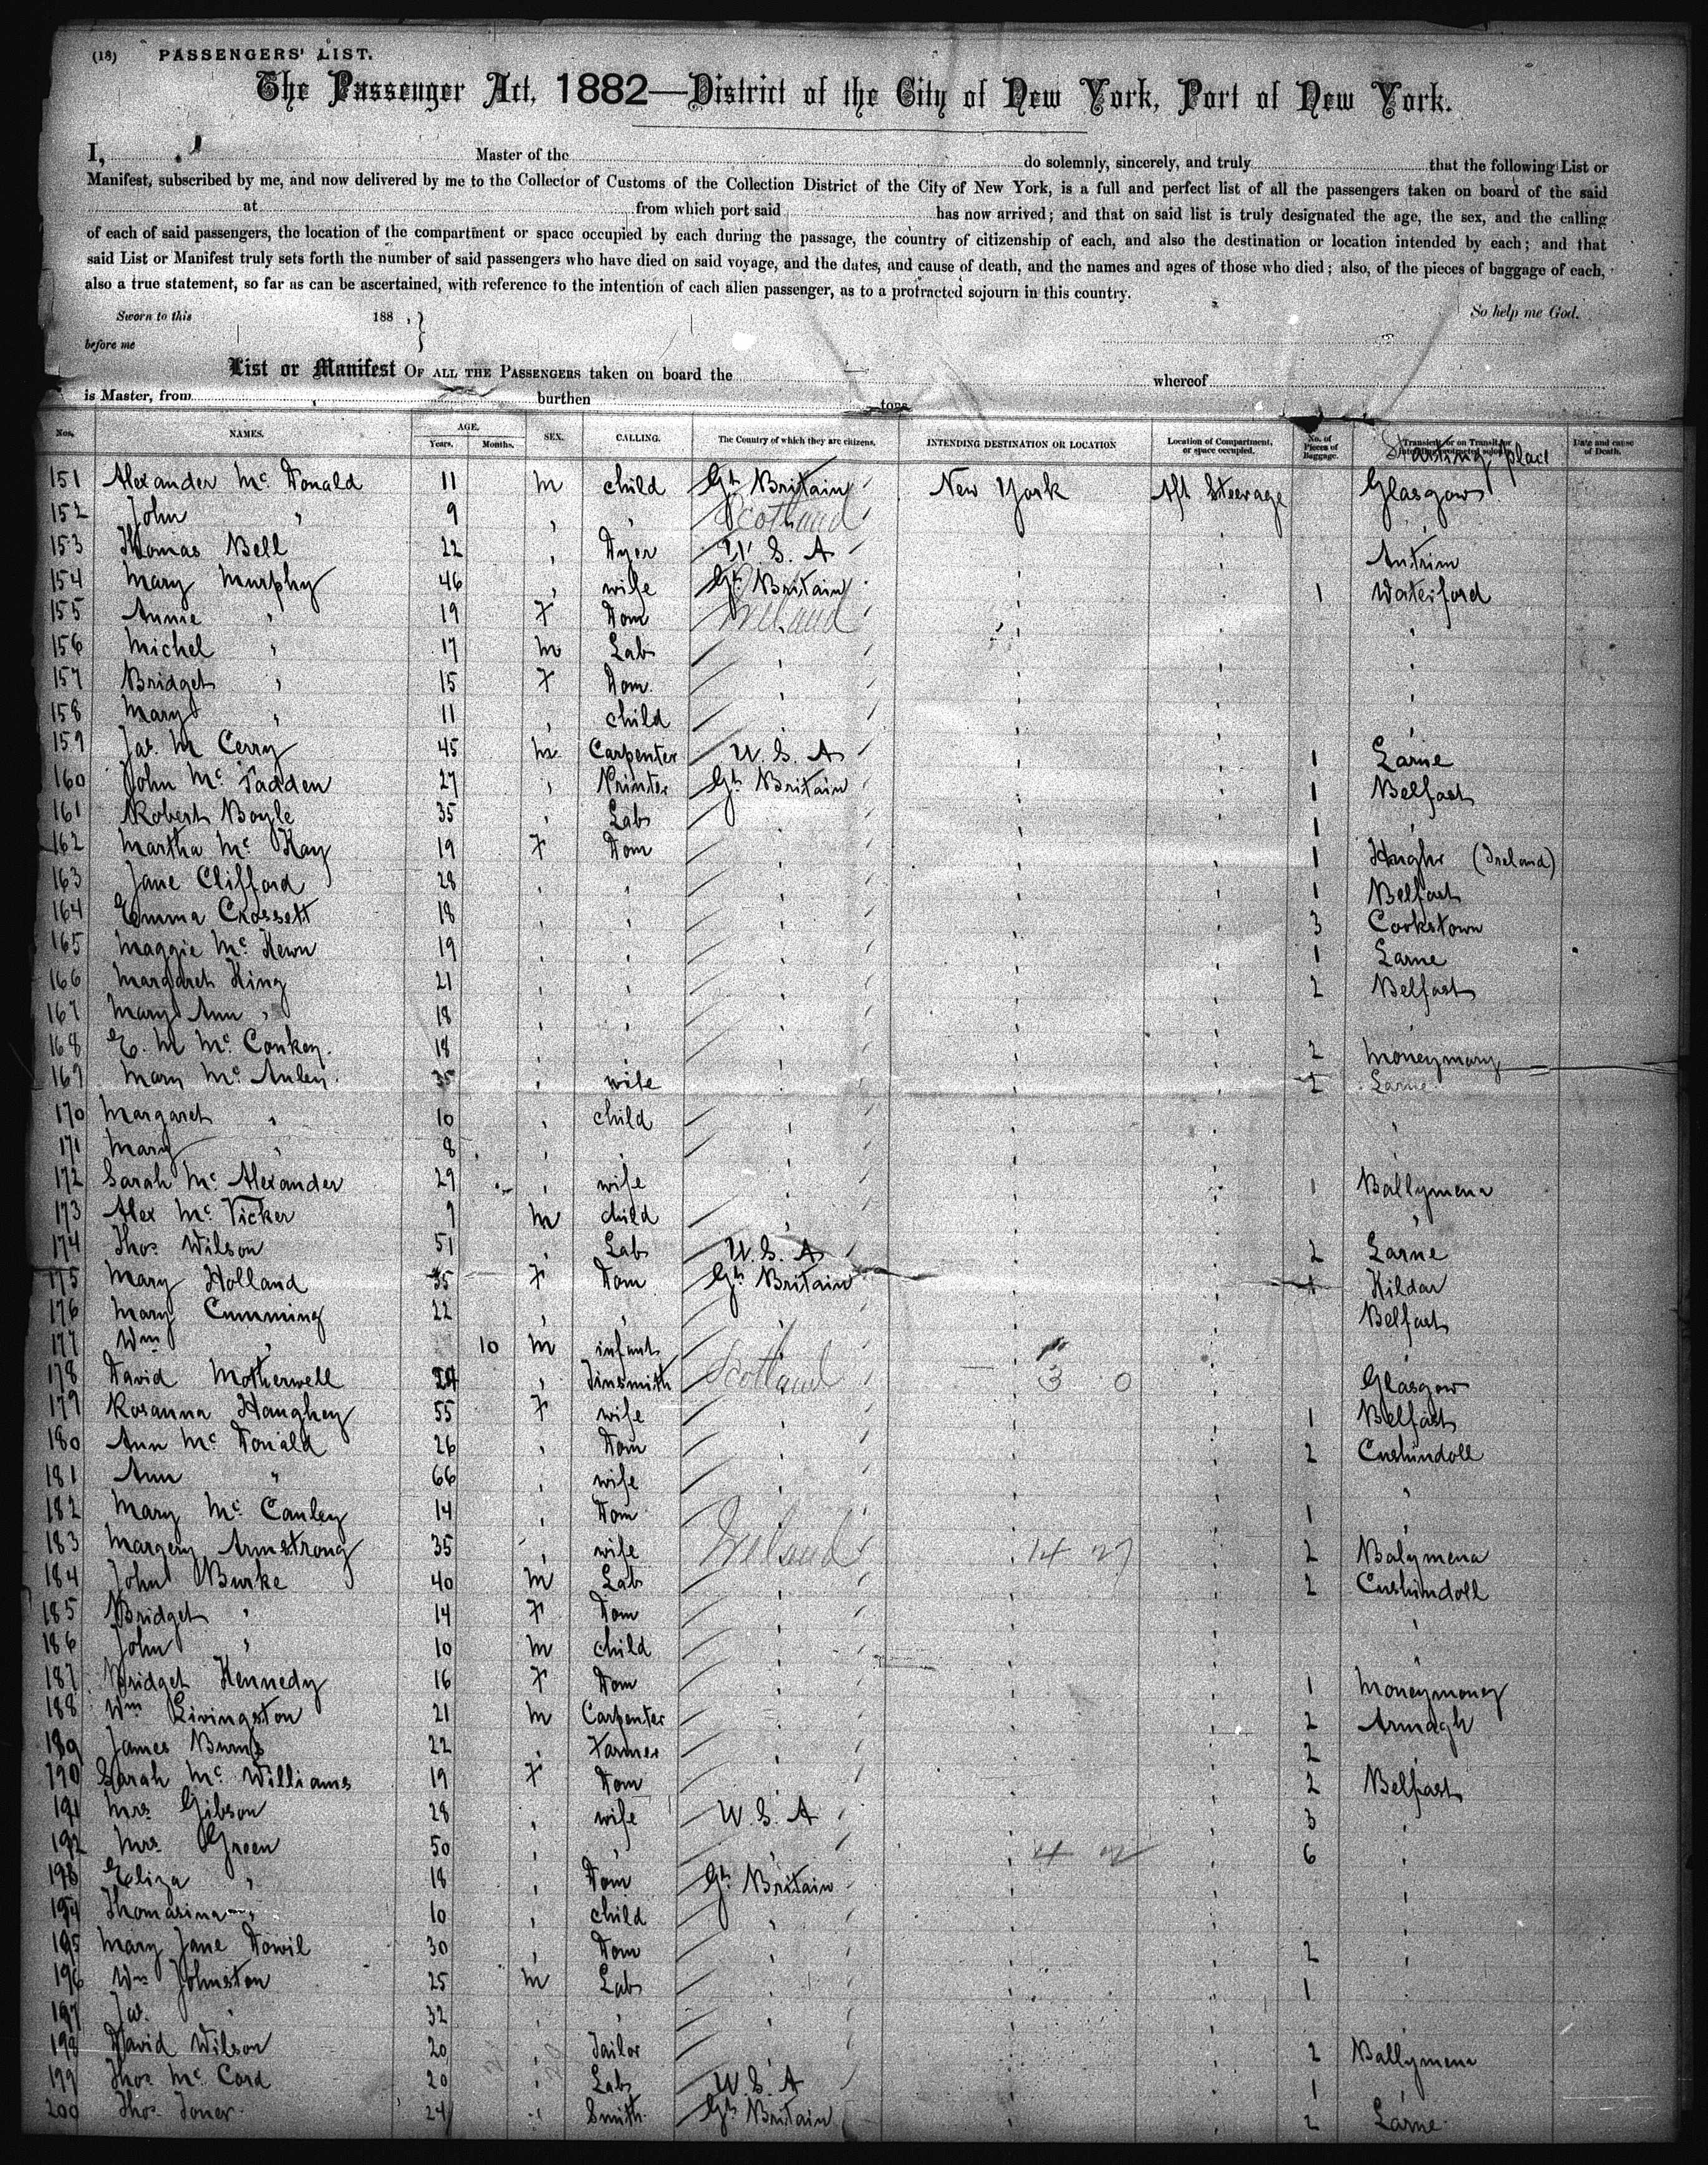 (18) PASSENGERS' LIST.
The Passenger Act, 1882—District of the City of New York, Port of New York.
I, Master of the do solemnly, sincerely, and truly that the following List or
Manifest, subscribed by me, and now delivered by me to the Collector of Customs of the Collection District of the City of New York, is a full and perfect list of all the passengers taken on board of the said
at from which port said has now arrived; and that on said list is truly designated the age, the sex, and the calling
of each of said passengers, the location of the compartment or space occupied by each during the passage, the country of citizenship of each, and also the destination or location intended by each; and that
said List or Manifest truly sets forth the number of said passengers who have died on said voyage, and the dates, and cause of death, and the names and ages of those who died; also, of the pieces of baggage of each,
also a true statement, so far as can be ascertained, with reference to the intention of each alien passenger, as to a protracted sojourn in this country.
Sworn to this 188 , } So help me God.
before me
List or Manifest OF ALL THE PASSENGERS taken on board the whereof
is Master, from burthen tons
Nos. NAMES. AGE. Years. Months. SEX. CALLING. The Country of which they are citizens. INTENDING DESTINATION OR LOCATION Location of Compartment, or space occupied. No. of Pieces of Baggage. Starting place Date and cause of Death.
151 Alexander Mc Donald 11 m child Gt Britain New York Aft Steerage Glasgow
152 John " 9 " " Scotland
153 Thomas Bell 22 " Dyer U. S. A " " Antrim
154 Mary Murphy 46 " wife Gt Britain " " 1 Waterford
155 Annie " 19 F Dom Ireland " " "
156 Michel " 17 m Lab " " " "
157 Bridget " 15 F Dom " " " "
158 Mary " 11 " child " " " "
159 Jas. M Cerry 45 m Carpenter U. S. A " " 1 Larne
160 John Mc Fadden 27 " Printer Gt Britain " " 1 Belfast
161 Robert Boyle 35 " Lab " " " 1 "
162 Martha Mc Kay 19 F Dom " " " 1 (Ireland)
163 Jane Clifford 28 " " " " " 1 Belfast
164 Emma Crossett 18 " " " " " 3 Cookstown
165 Maggie Mc Kewn 19 " " " " " 1 Larne
166 Margaret King 21 " " " " " 2 Belfast
167 Mary Ann " 18 " " " " "
168 E. M Mc Conkey 18 " " " " 2 Moneymary
169 Mary Mc Auley 35 " wife " " " 2 Larne
170 Margaret " 10 " child " " " "
171 Mary " 8 " " " " " "
172 Sarah Mc Alexander 29 " wife " " " 1 Ballymena
173 Alex Mc Vicker 9 m child " " " "
174 Thos Wilson 51 " Lab U. S. A " " 2 Larne
175 Mary Holland 35 F Dom Gt Britain " " 1 Kildar
176 Mary Cumming 22 " " " " " Belfast
177 Wm " 10 m infant " " "
178 David Motherwell " Tinsmith Scotland 3 0 " Glasgow
179 Rosanna Haughey 55 F wife " " " 1 Belfast
180 Ann Mc Donald 26 " Dom " " " 2 Cushindoll
181 Ann " 66 " wife " " " "
182 Mary Mc Cauley 14 " Dom " " " 1 "
183 Margery Armstrong 35 " wife Ireland 14 27 " 2 Balymena
184 John Burke 40 m Lab " " " 2 Cushindoll
185 Bridget " 14 F Dom " " " "
186 John " 10 m child " " " "
187 Bridget Kennedy 16 F Dom " " " 1 Moneymoney
188 Wm Livingston 21 m Carpenter " " " 2 Armagh
189 James Burns 22 " Farmer " " " 2 "
190 Sarah Mc Williams 19 F Dom " " " 2 Belfast
191 Mrs Gibson 28 " wife U. S. A " " 3 "
192 Mrs Green 50 " " " 4 2 " 6 "
193 Eliza " 18 " Dom Gt Britain " " "
194 Thomasina " 10 " child " " " "
195 Mary Jane Dowil 30 " Dom " " " 2 "
196 Wm Johnston 25 m Lab " " " 1 "
197 Jas. " 32 " " " " " "
198 David Wilson 20 " Tailor " " " 2 Ballymena
199 Thos Mc Cord 20 " Lab U. S. A " " 1 "
200 Thos Toner 24 " Smith Gt Britain " " 2 Larne